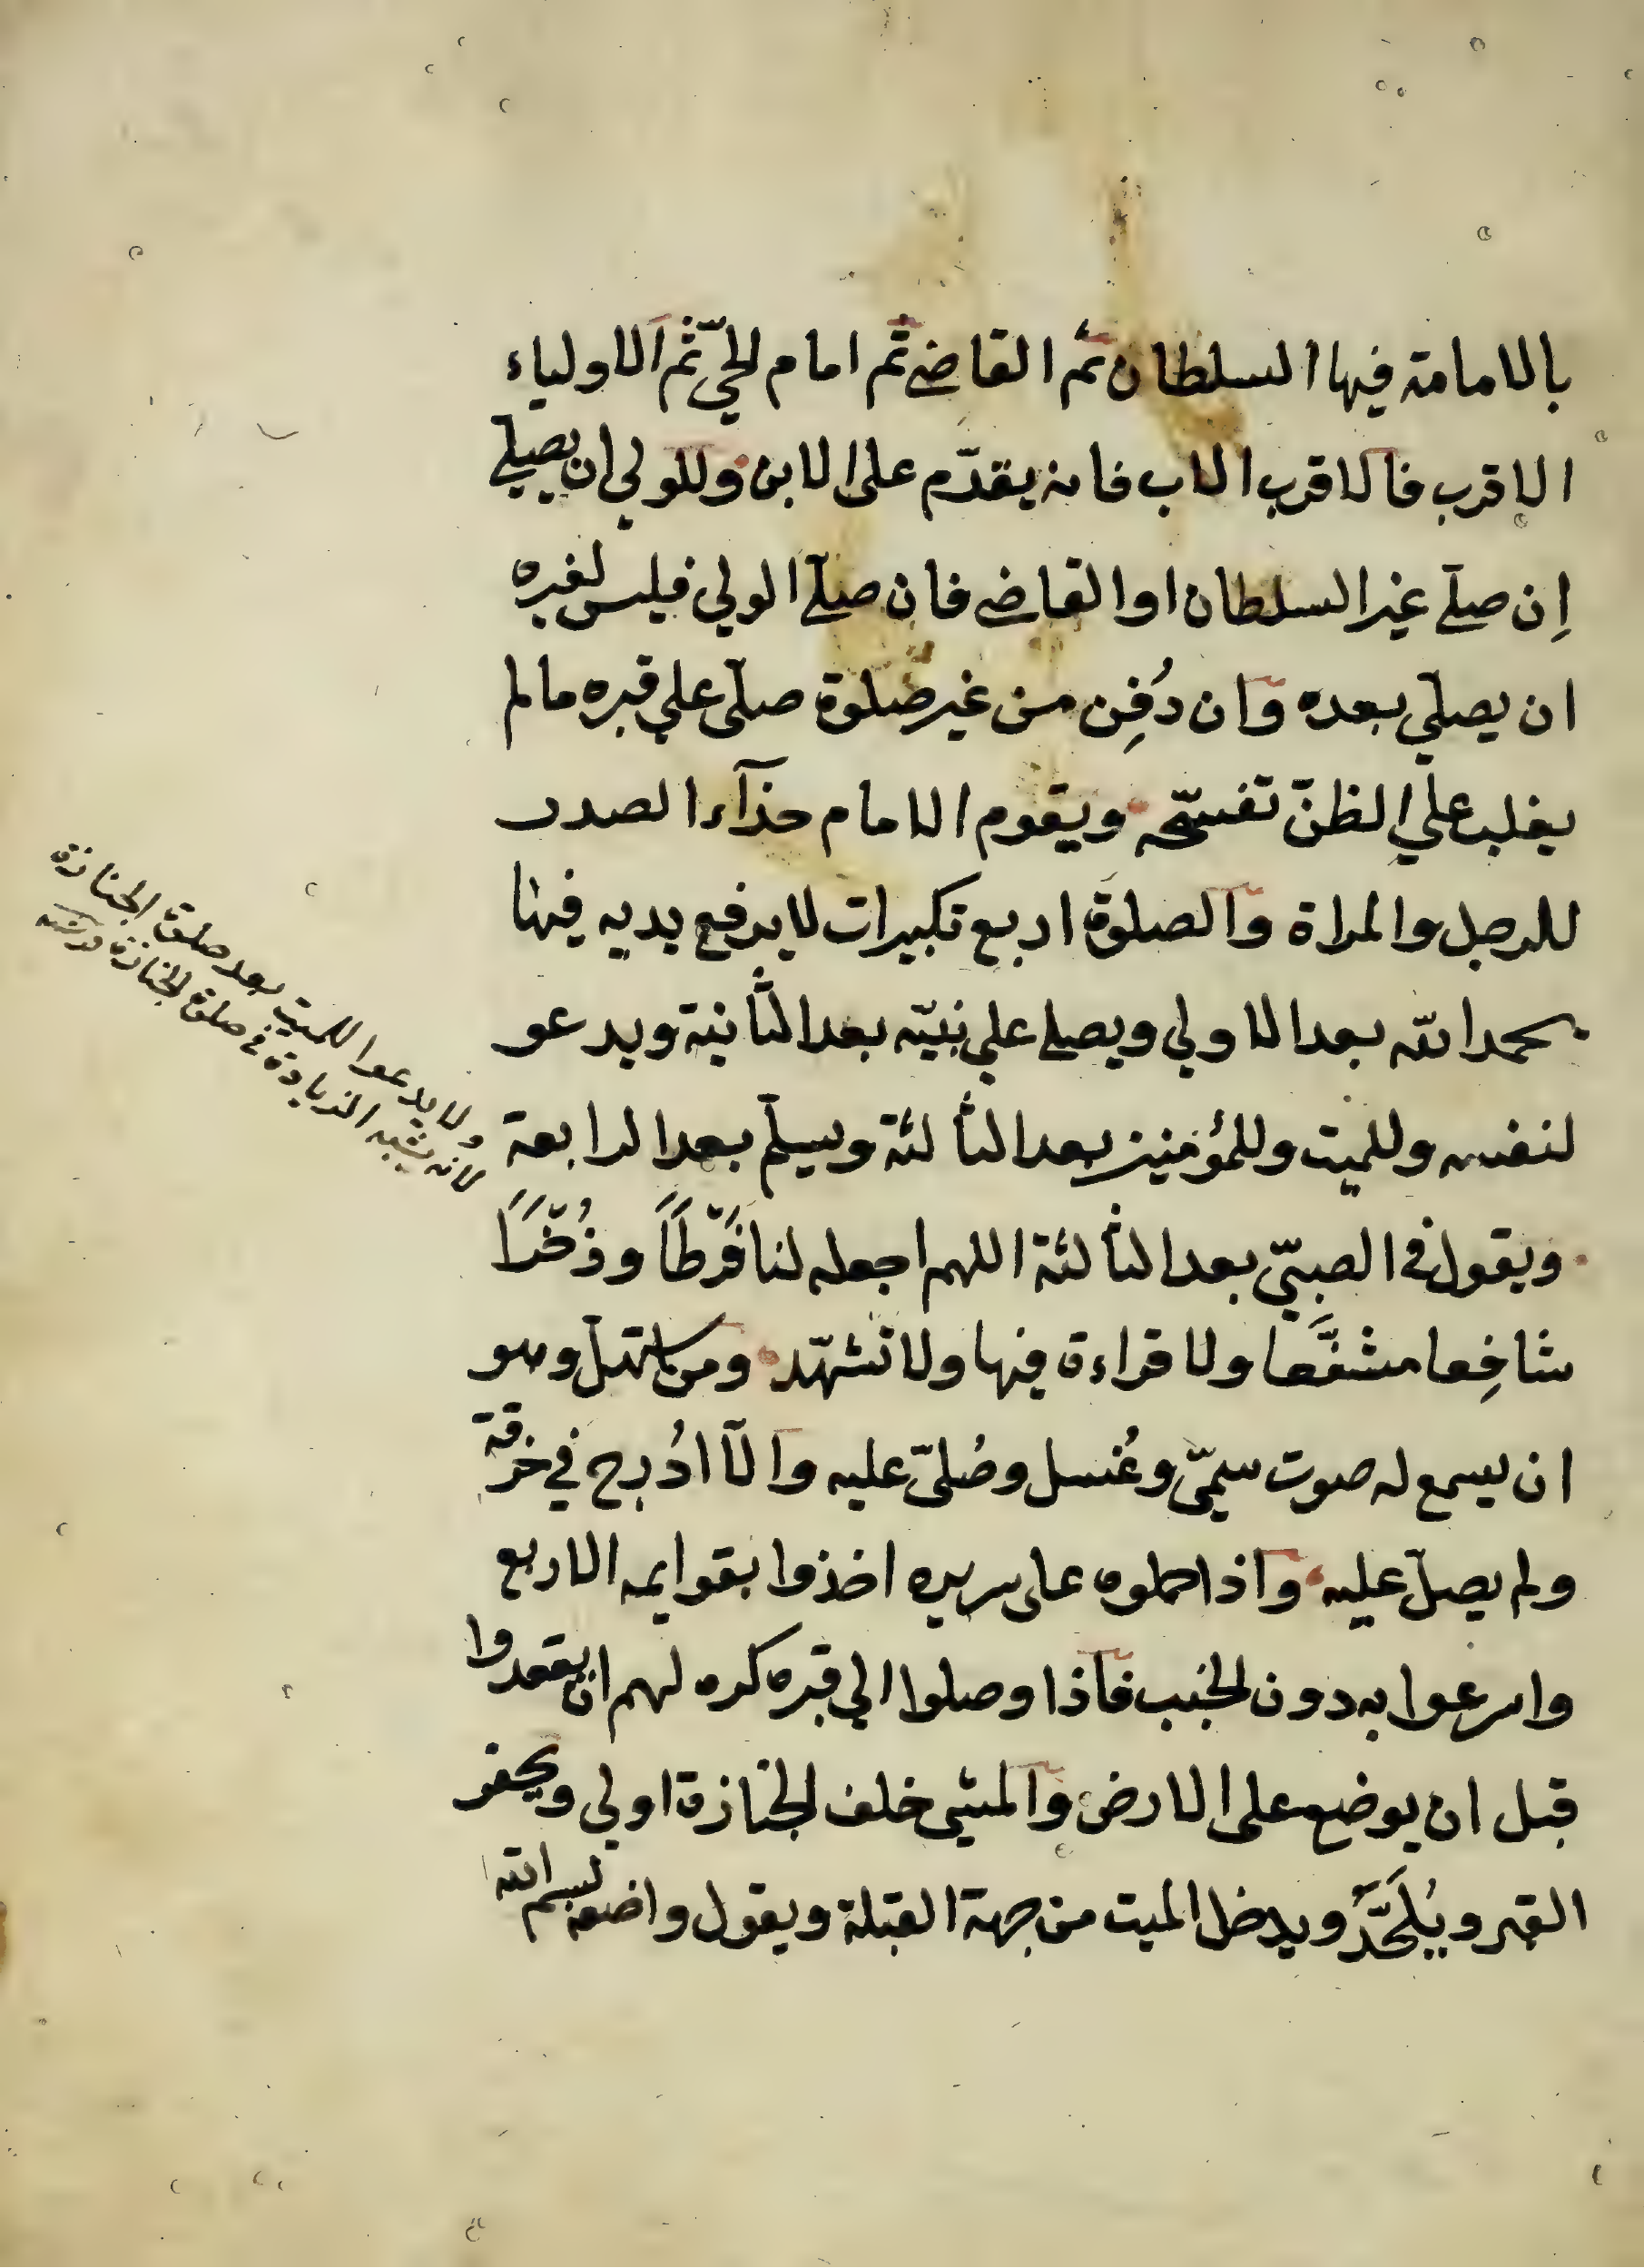 بالامامة فيها السلطان ثم القاضي ثم امام الحيّ ثم الاولياء
الاقرب فالاقرب الا الاب فانه يقدّم على الابن وللولي ان يصلي
اِن صلى غير السلطان او القاضي فان صلّى الولي فليس لغيره
ان يصلّي بعده وان دُفِن من غير صلوة صلّى علي قبره مالم
يغلب علي الظنّ تفسّخه ويقوم الامام حذآء الصدر
للرجل والمراة والصلوة اربع تكبيرات لا يرفع يديه فيها
يحمد الله بعد الاولي ويصلي علي نبيّه بعد الثانية ويدعو
لنفسه وللميت وللمؤمنين بعد الثالثة ويسلّم بعد الرابعة
ويقول في الصبيّ بعد الثالثة اللهم اجعله لنا فَرَطًا وذُخْرًا
شافِعا مشفَّعا ولا قراءة فيها ولا تشهّد ومن استهلّ وهو
ان يسمع له صوت سمّي وغُسل وصُلّى عليه والّا اُدرج في خرقة
ولم يصلّ عليه واذا حملوه على سريره اخذوا بقوايمه الاربع
واسرعوا به دون الخبب فاذا وصلوا الي قبره كره لهم ان يقعدوا
قبل ان يوضع على الارض والمشي خلف الجنازة اولي ويحفر
القبر ويُلَحَّدُ ويدخل الميت من جهة القبلة ويقول واضعه بسم الله
ولا يدعوا للميت بعد صلوة الجنازة
لانه يشبه الزيادة في صلوة الجنازة